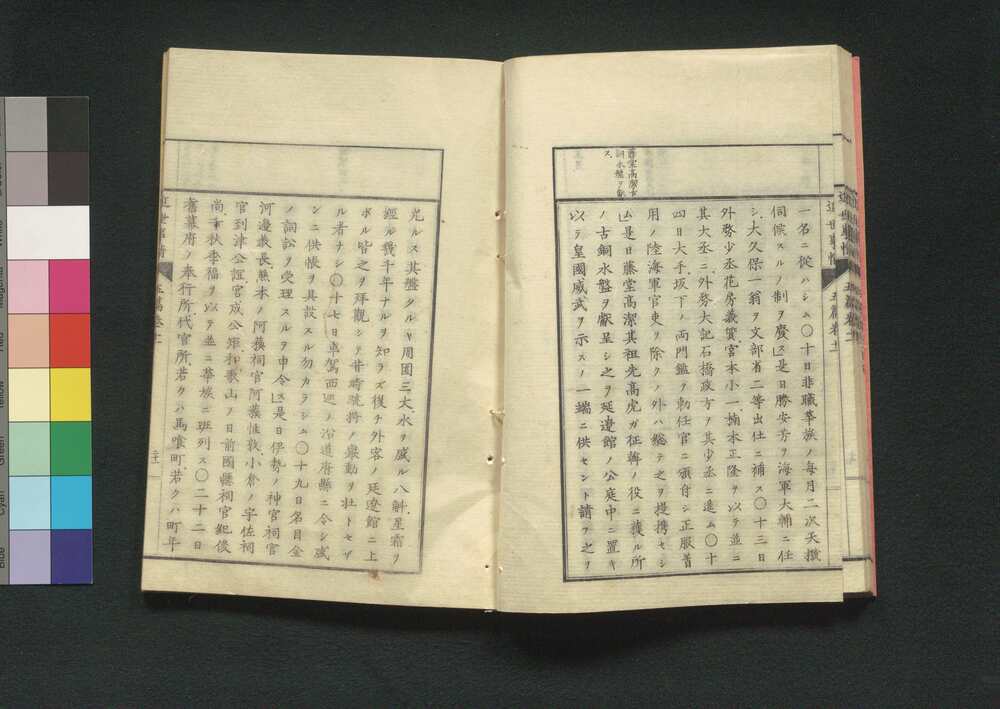 近世事情
五篇卷十一
一名ニ從ハシム〇十日非職華族ノ毎月二次天機
伺候スルノ制ヲ廢ス」是日勝安芳ヲ海軍大輔ニ任
シ大久保一翁ヲ文部省二等出仕ニ補ス〇十三日
外務少丞花房義質宮本小一楠本正隆ヲ以テ並ニ
其大丞ニ外務大記石橋政方ヲ其少丞ニ進ム〇十
四日大手坂下ノ両門鑑ヲ勅任官ニ頒付シ正服着
用ノ陸海軍官吏ヲ除クノ外ハ總テ之ヲ提携セシ
ム是日藤堂高潔其祖先高虎ガ征韓ノ役ニ獲ル所
ノ古銅水盤ヲ獻呈シ之ヲ延遼館ノ公庭中ニ置キ
以テ皇國威武ヲ示スノ一端ニ供セント請フ之ヲ
藤堂高潔古
銅水盤ヲ獻
ス
允ルス其盤タルヤ周圍三丈水ヲ盛ル八斛星霜ヲ
經ル幾千年ナルヲ知ラズ後チ外客ノ延遼館ニ上
ボル皆之ヲ拜觀シテ昔時豼貅ノ擧動ヲ壮トセザ
ル者ナシ〇十七日車駕西巡ノ沿道府縣ニ令シ盛
ンニ供帳ヲ具設スル勿カラシム〇十九日各日金
ノ詞訟ヲ受理スルヲ申令ス」是日伊勢ノ神官祠官
河邊教長熊本ノ阿蘓祠官阿蘓惟敦小倉ノ宇佐祠
官到津公誼宮成公矩和歌山ヲ日前國縣祠官紀俊
尚千秋季福ヲ以テ並ニ華族ニ班列ス〇二十二日
舊幕府ノ奉行所代官所若クハ馬喰町若クハ町年
近世事情
五篇卷十一